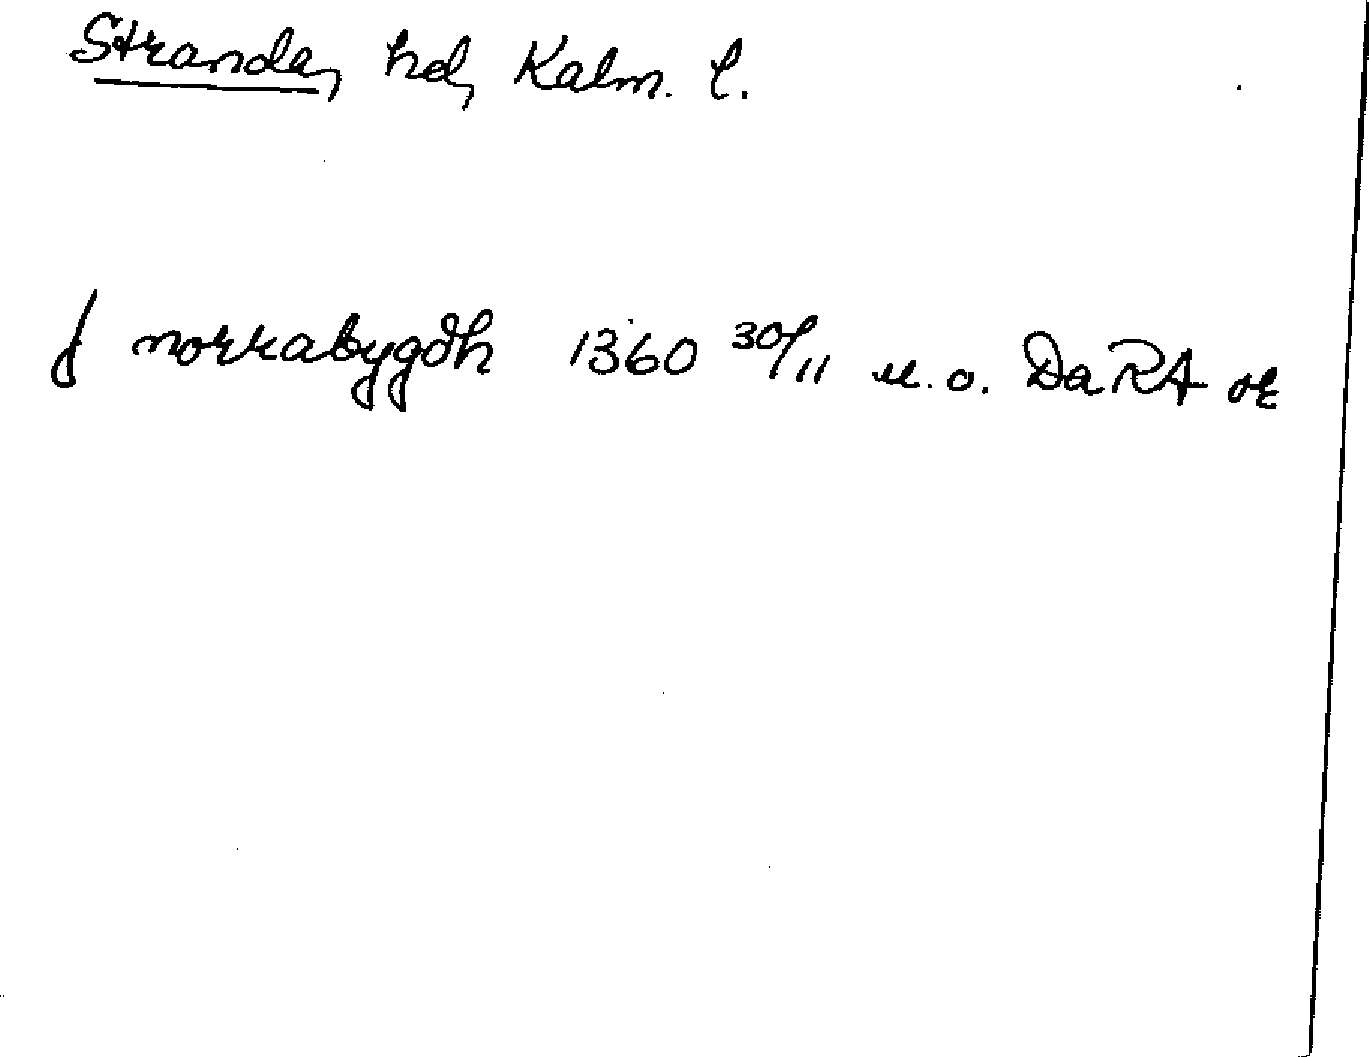 Stranda, hd, Kalm. l.
j norrabygdh 1360 30/11 u.o. DaRA or